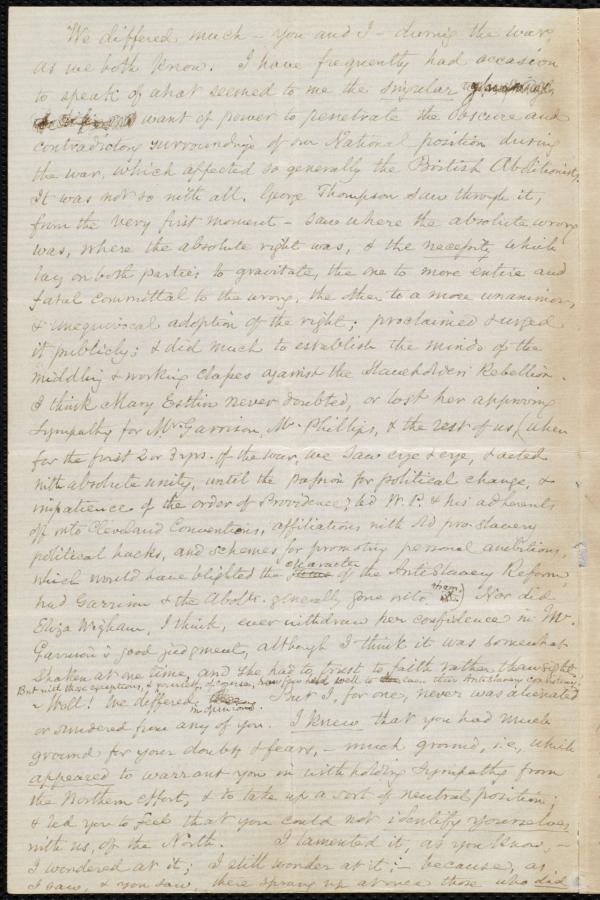 We differed much – you and I – during the war,
as we both know. I have frequently had occasion
to speak of what seemed to me the singular
want of power to penetrate the obscure and
contradictory surroundings of our National position during
the war, which affected so generally the British Abolitionists.
It was not so with all. George Thompson saw through it,
from the very first moment – saw where the absolute wrong
was, where the absolute right was, & the necessity which
lay on both parties to gravitate, the one to more entire and
fatal committal to the wrong, the other to a more unanimous,
& unequivocal adoption of the right; proclaimed & urged
it publicly; & did much to establish the minds of the
middling & working classes against the Slaveholders' Rebellion.
I think Mary Estlin never doubted, or lost her approving
sympathy for Mr. Garrison, Mr. Phillips, & the rest of us, (when
for the first 2 or 3 yrs. of the war, we saw eye & eye, & acted
with absolute unity, until the passion for political change, &
impatience of the order of Providence, led W. P. & his adherents
off into Cleveland Conventions, affiliations with old pro-slavery
political hacks, and schemes for promoting personal ambitions,
which would have blighted the character of the Antislavery Reform,
had Garrison & the Abolts. generally gone into them.) Nor did
Eliza Wigham, I think, ever withdraw her confidence in Mr.
Garrison's good judgment, although I think it was somewhat
shaken at one time, and she had to trust to faith rather than sight.
But with these exceptions, & you held well to their Antislavery
– Well! We differed in opinions. But I, for one, never was alienated
or sundered from any of you. I knew that you had much
ground for your doubts & fears, – much ground, i.e., which
appeared to warrant you in withholding sympathy from
the Northern effort, & to take up a sort of neutral position;
& led you to feel that you could not identify yourselves,
with us, of the North. I lamented it, as you know, –
I wondered at it; I still wonder at it; – because, as
I saw, & you saw, there sprang up at once those who did